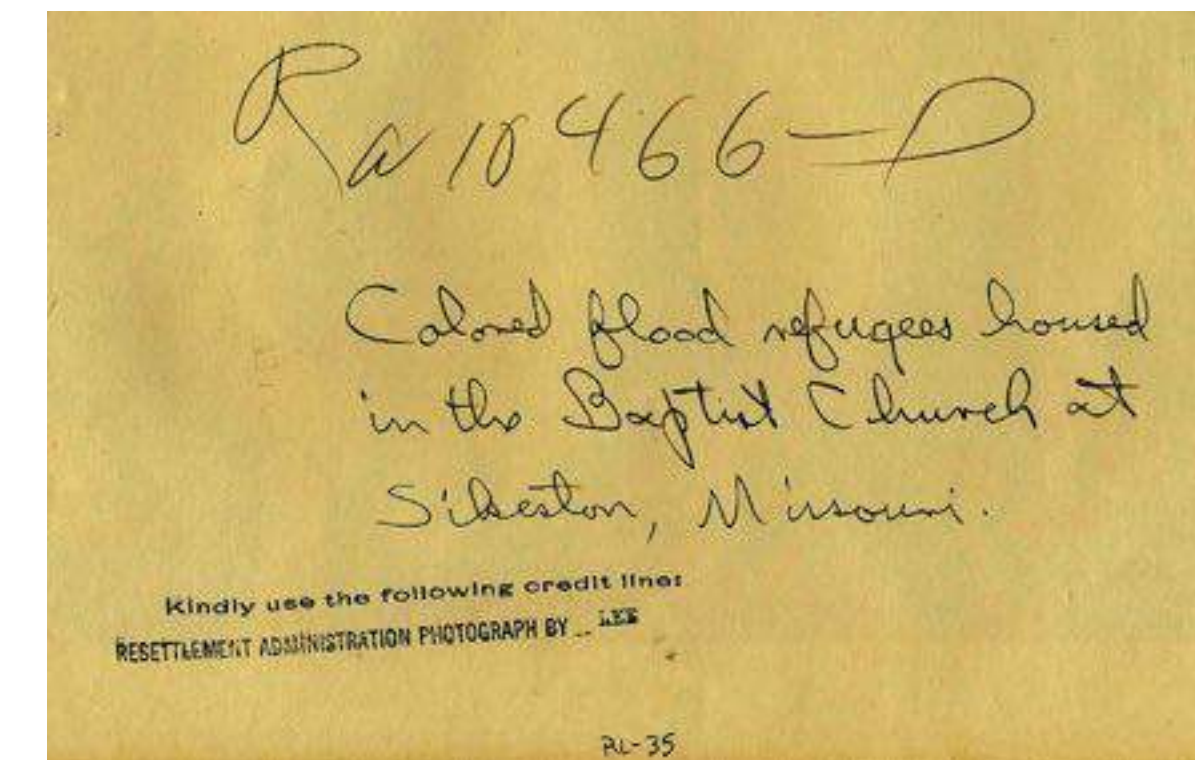 Ra 10466-D
Colored flood refugees housed
in the Baptist Church at
Sikeston, Missouri.
Kindly use the following credit line:
RESETTLEMENT ADMINISTRATION PHOTOGRAPH BY LEE
RL-35